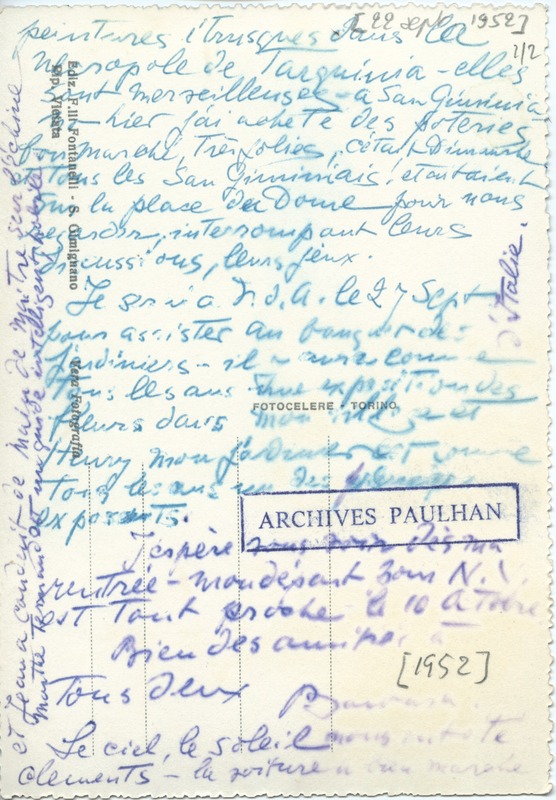 [22 sept 1952]
2/2
peintures étrusques dans la
Nécropole de Tarquinia - elles
sont merveilleuses - a San Giminia
- hier j'ai acheté des poteries
bon marché, très jolies, c'était Dimanche
et tous les San Giminiais étaient
sur la place du Dome pour nous
regarder, interrompant leurs
discussions, leurs jeux.
Je serai à N.d.A. le 27 Sept
pour assister au banquet des
Jardiniers - il y aura comme
tous les ans une exposition des
fleurs dans mon
Henry mon jardinier est comme
tous les ans un des
exposants.
J'espère vous voir dès ma
rentrée - mon départ pour N.Y.
est tout proche - le 10 Octobre
Bien des amitiés à
Tous deux
Le ciel, le soleil nous
cléments - la voiture a bien marché
et
conduit de main de maître sur
d'Italie.
Ediz. F.lli Fontanelli - S. Gimignano
Rip. Vietata
Vera Fotografia
FOTOCELERE - TORINO
ARCHIVES PAULHAN
[1952]